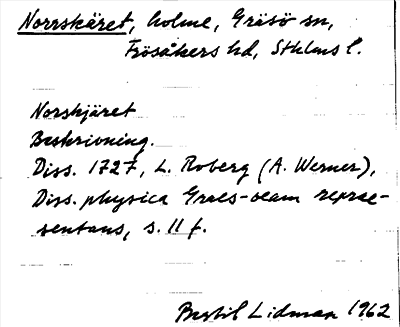 Norrskäret, holme, Gräsö sn,
Frösåkers hd, Sthlms l.
Norskjäret
Beskrivning.
Diss. 1727, L. Roberg (A. Werner),
Diss. physica Graes-oeam reprae-
sentans, s. 11 f.
Bertil Lidman 1962